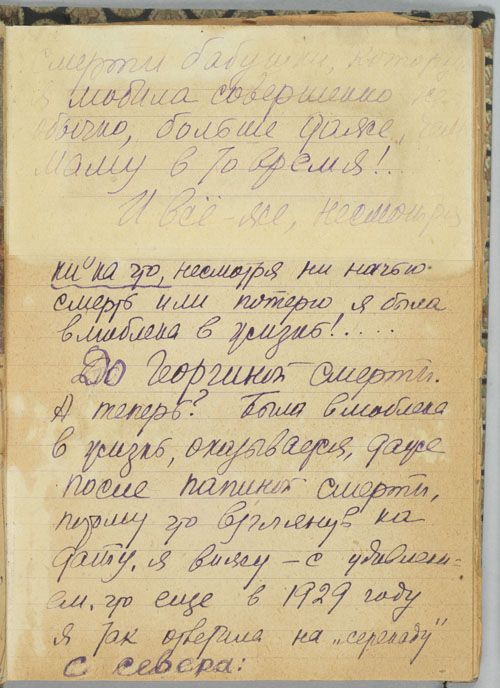 смерти бабушки, которую
я любила совершенно не
обычно, больше даже, чем
маму в то время!..
И всё-же, несмотря
ни на что, несмотря ни на чью
смерть или потерю я была
влюблена в жизнь!....
До Георгиной смерти.
А теперь? Была влюблена
в жизнь, оказывается, даже
после папиной смерти,
потому что взглянув на
дату, я вижу – с удивлени-
ем, что еще в 1929 году
я так ответила на „серенаду"
с севера: